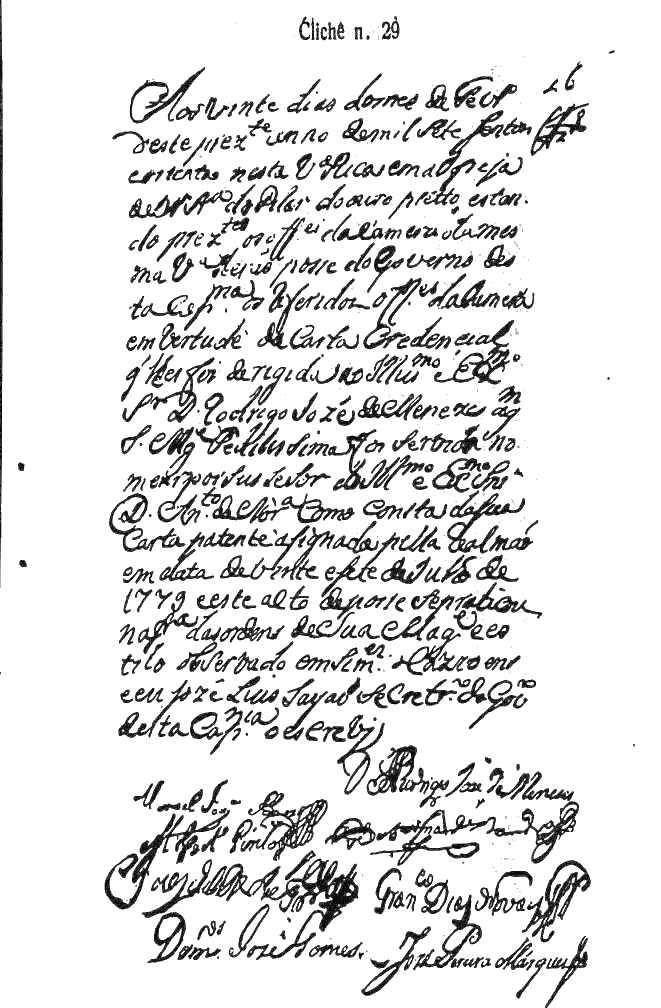 Clichê n. 29
26
Aos vinte dias do mes de Fevr.º
deste prez.te anno de mil sete sentos
e oitenta nesta V.ª Rica em a Igreja
de N. Sr.ª do Pilar do ouro pretto, estan-
do prez.tes os off.es da Camera da mes
ma V.ª posse do Governo des
ta Cap.nia os referidos off.es da Camera
em vertude da Carta Credencial
q' lhes foi derigida ao Illus.mo e Ex.mo
Sr. D. Rodrigo Jozé de Menezes
S. Mag.e Fedelissima foi Servida no
mear por sucesor do Ill.mo e Ex.mo Snr.
D. An.to de Nor.ª Como consta da sua
Carta patente asignada pella Real mão
em data de vinte e sete de Julho de
1779 e este acto de posse se praticou
na f.ª das ordens de Sua Mag.e e es
tilo observado em sim.es ocazioens
e eu Jozé Luis Sayaõ Secretr.º do Gov.no
desta Cap.nia o escrevi
D. Rodrigo José de Menezes
Manoel
Pinto
Fran.co Dias Novaes
Dom.os José Gomes.
José Pereira Marques